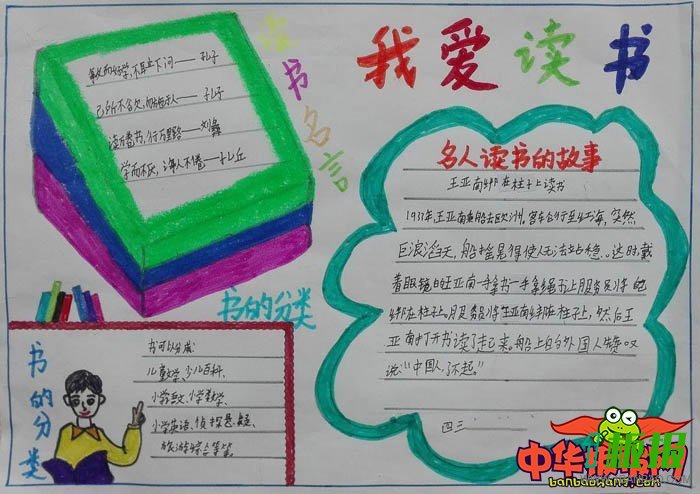 我爱读书
读书名言
敏而好学,不耻下问——孔子
己所不欲,勿施于人——孔子
读万卷书,行万里路——刘彝
学而不厌,诲人不倦——孔丘
名人读书的故事
王亚南绑在柱子上读书
1933年,王亚南乘船去欧洲。客轮行至红海,突然
巨浪滔天,船摇晃得使人无法站稳。这时戴
着眼镜的王亚南一手拿书一手拿绳子上服务员将他
绑在柱子上。服务员将王亚南绑在柱子上,然后王
亚南打开书读了起来。船上的外国人赞叹
说:“中国人,了不起。”
四三
书的分类
书的分类
书可以分成:
儿童文学、少儿百科、
小学语文、小学数学、
小学英语、侦探悬疑、
旅游综合等等。
中华
趣报
banbaowang.com